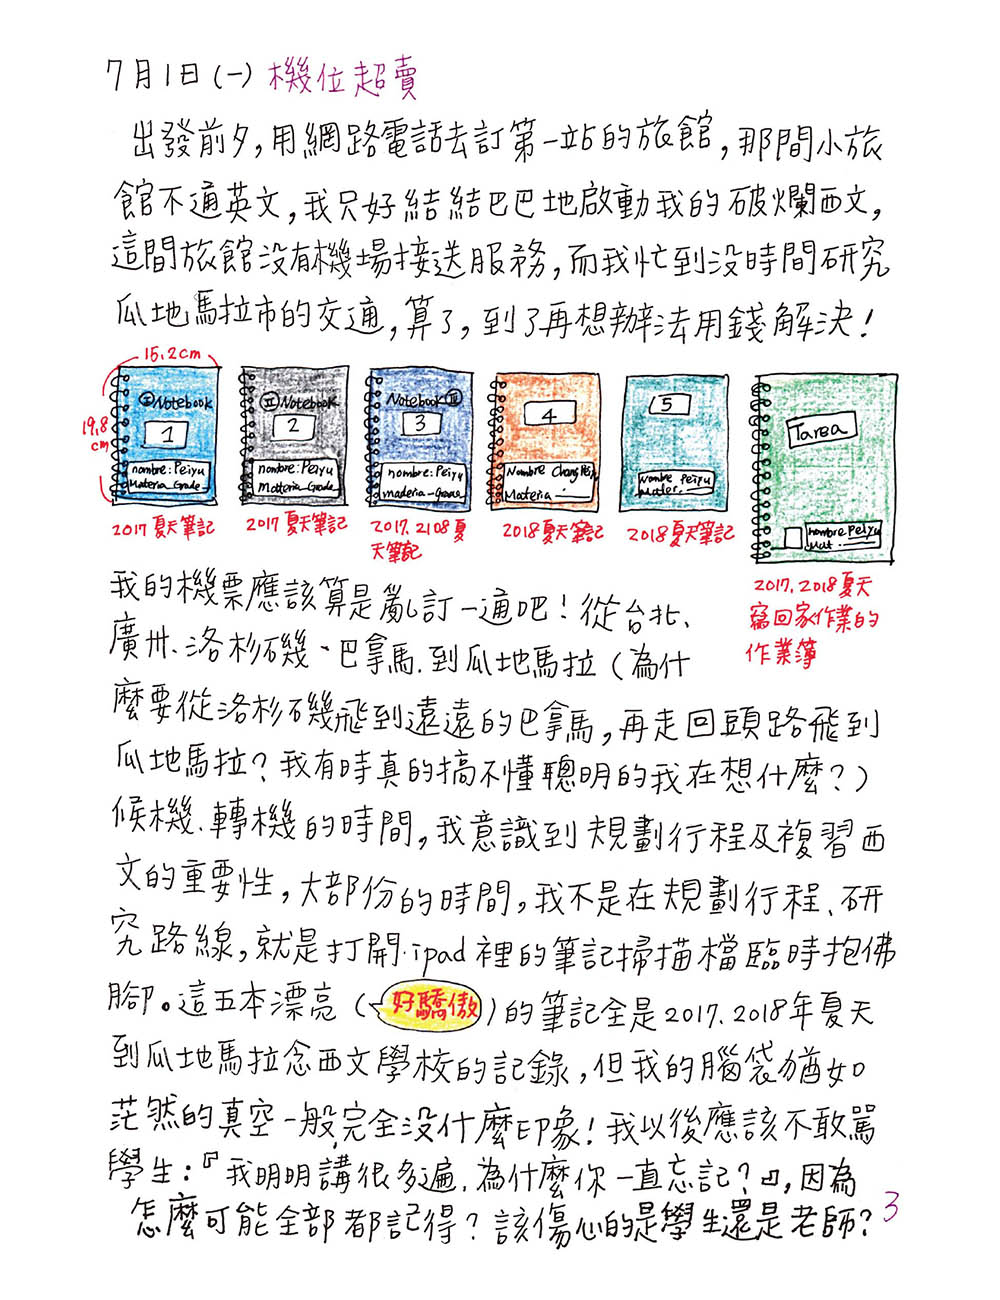 7月1日(一) 機位超賣
出發前夕,用網路電話去訂第一站的旅館,那間小旅
館不通英文,我只好結結巴巴地啟動我的破爛西文,
這間旅館沒有機場接送服務,而我忙到沒時間研究
瓜地馬拉市的交通,算了,到了再想辦法用錢解決!
15.2cm
19.8
cm
I Notebook
1
nombre: Peiyu
Materia Grade
2017夏天筆記
II Notebook
2
nombre: Peiyu
Matteria Grade
2017夏天筆記
Notebook III
3
nombre: Peiyu
maderia-Grade
2017,2108夏
天筆記
4
Nombre Chang Pei
Materia
2018夏天筆記
5
Nombre Peiyu
Mater.
2018夏天筆記
Tarea
nombre Peiyu
Mat.
2017,2018夏天
寫回家作業的
作業簿
我的機票應該算是亂訂一通吧!從台北、
廣州、洛杉磯、巴拿馬、到瓜地馬拉(為什
麼要從洛杉磯飛到遠遠的巴拿馬,再走回頭路飛到
瓜地馬拉?我有時真的搞不懂聰明的我在想什麼?)
候機、轉機的時間,我意識到規劃行程及複習西
文的重要性,大部份的時間,我不是在規劃行程、研
究路線,就是打開ipad裡的筆記掃描檔臨時抱佛
腳。這五本漂亮(好驕傲)的筆記全是2017、2018年夏天
到瓜地馬拉念西文學校的記錄,但我的腦袋猶如
茫然的真空一般,完全沒什麼印象!我以後應該不敢罵
學生:『我明明講很多遍,為什麼你一直忘記?』,因為
怎麼可能全部都記得?該傷心的是學生還是老師?
3